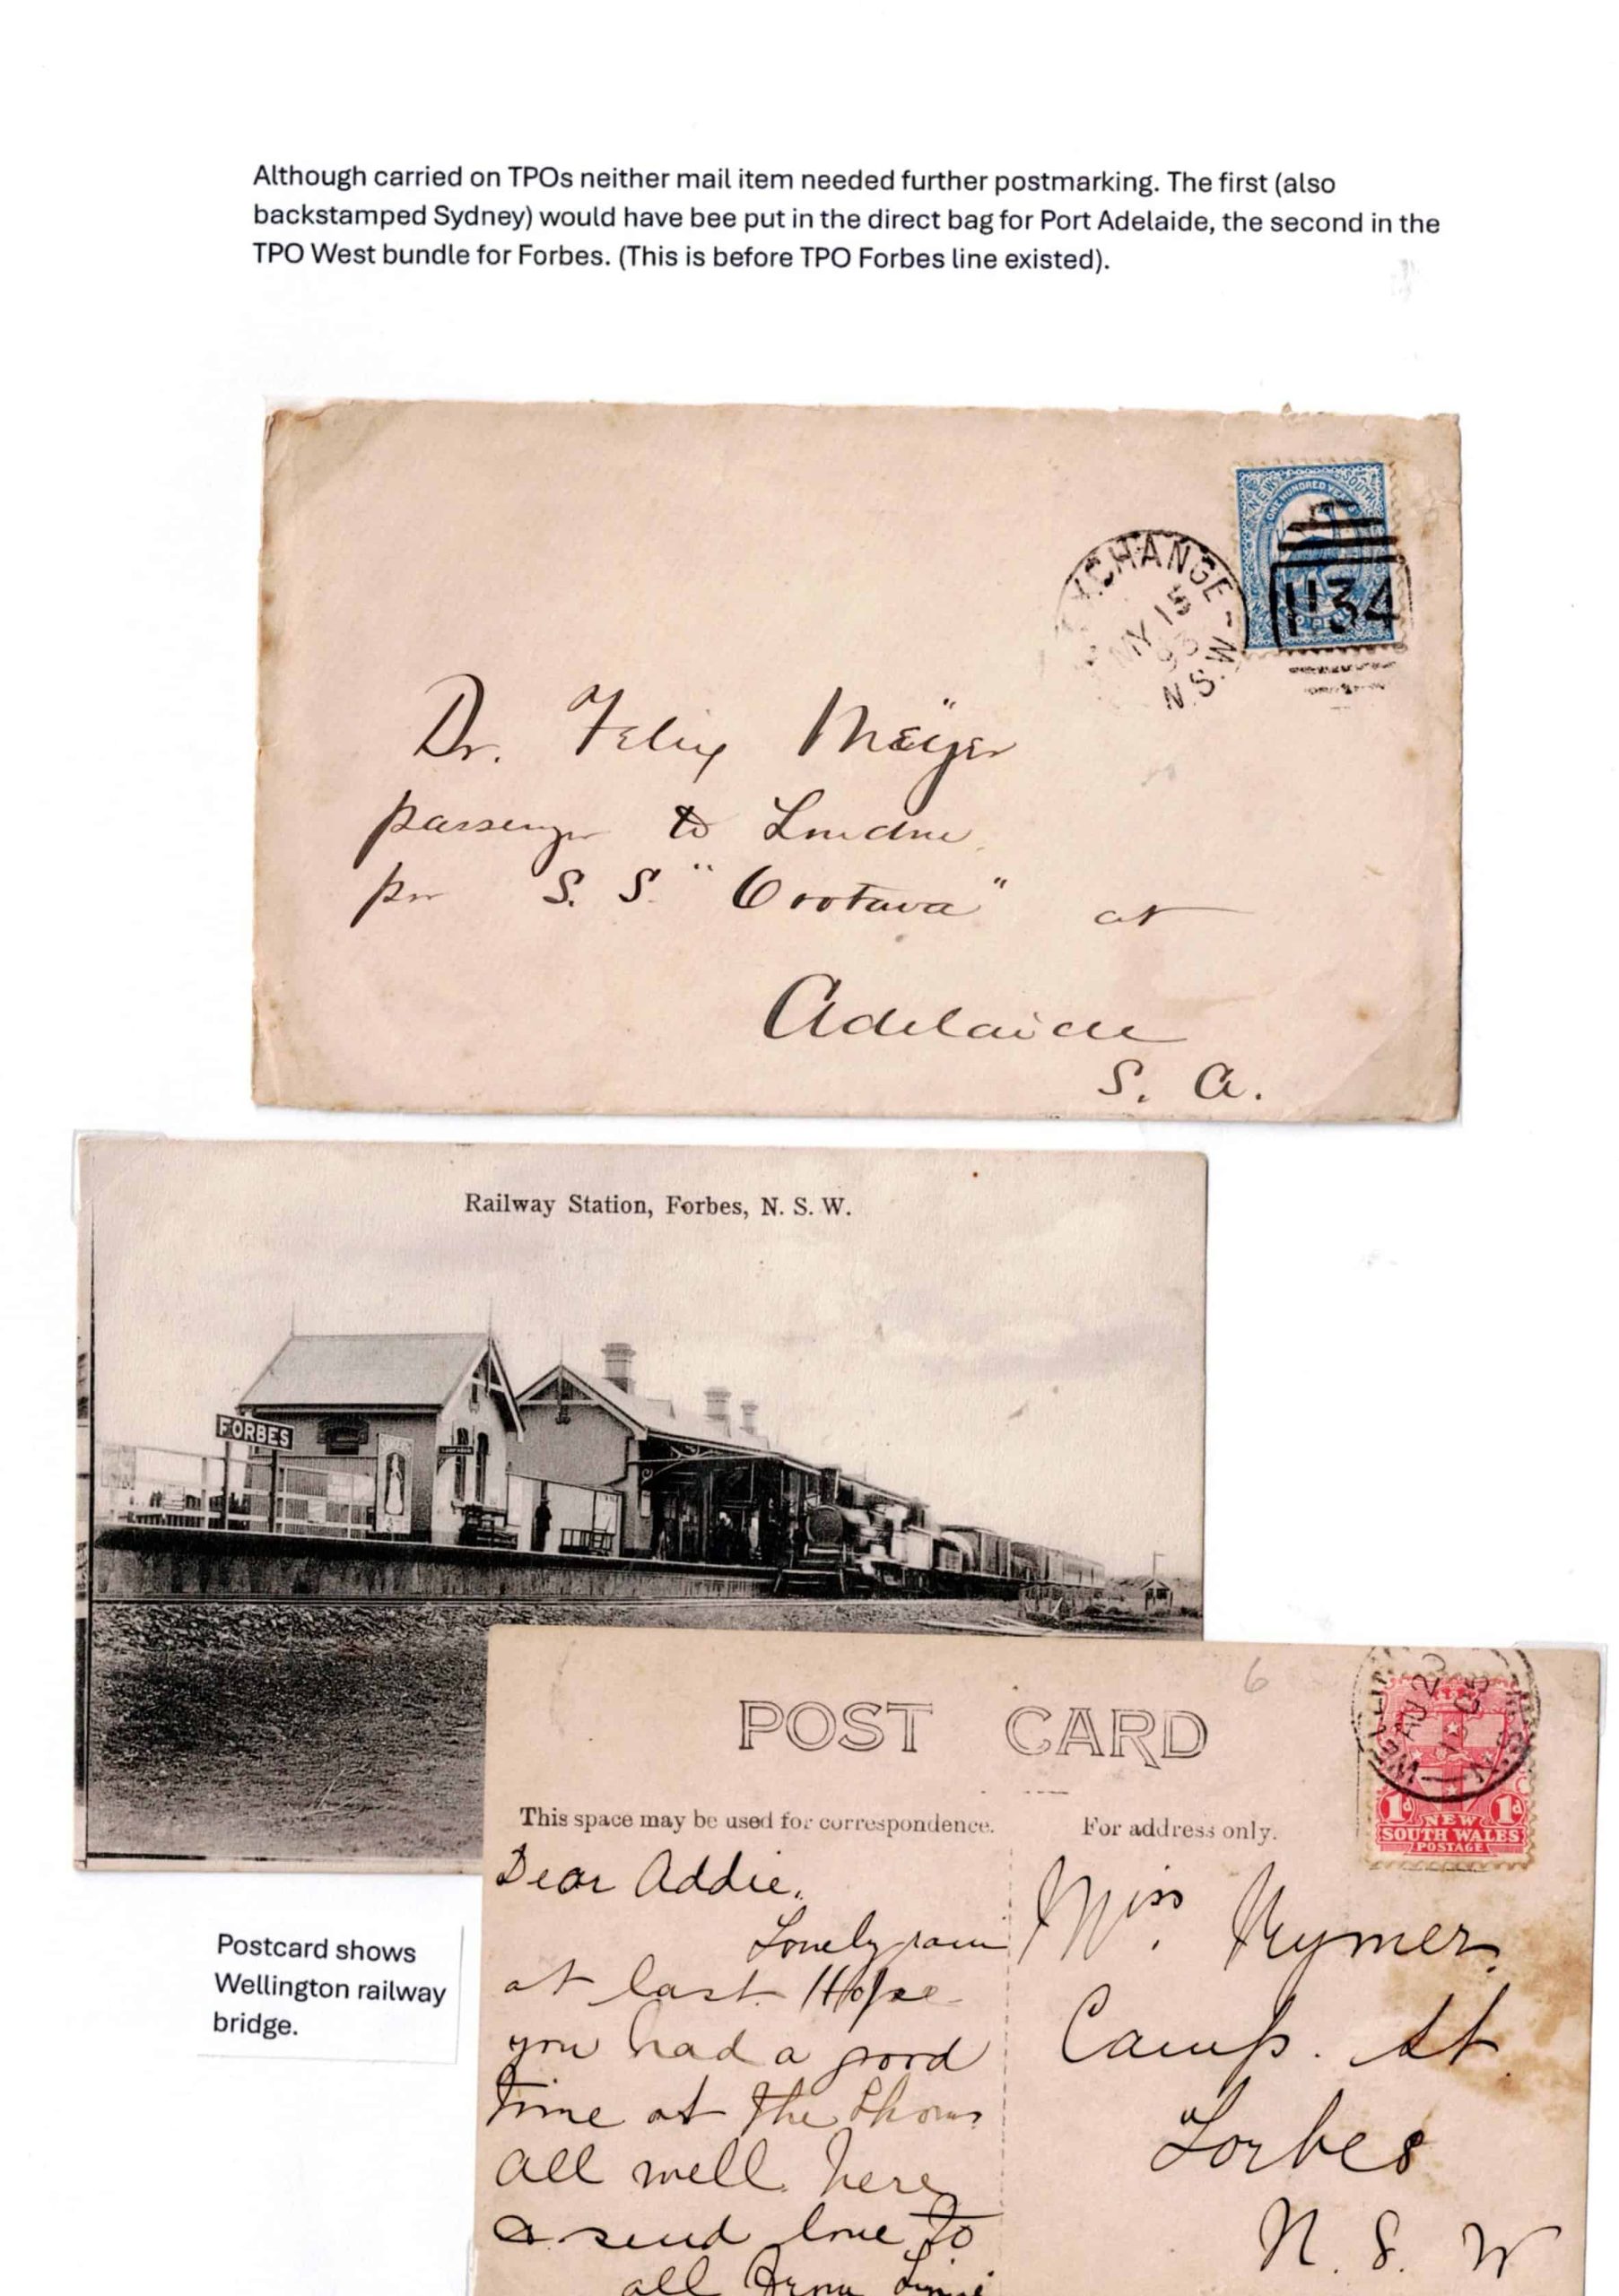 Although carried on TPOs neither mail item needed further postmarking. The first (also
backstamped Sydney) would have bee put in the direct bag for Port Adelaide, the second in the
TPO West bundle for Forbes. (This is before TPO Forbes line existed).
NEW SOUTH
ONE HUNDRED YEARS
1134
XCHANGE
MY 15
93
N.S.W
Dr. Felix Meÿer
passenger to London
per S. S. "Orotava" at
Adelaide
S. A.
Railway Station, Forbes, N. S. W.
FORBES
POST CARD
6
AU 20
1d 1d
NEW
SOUTH WALES
POSTAGE
This space may be used for correspondence.
For address only.
Dear Addie,
Lovely rain
at last. Hope
you had a good
time at the Show
all well here
& send love to
all from
Miss. Rymer.
Camp. St
Forbes
N. S. W
Postcard shows
Wellington railway
bridge.